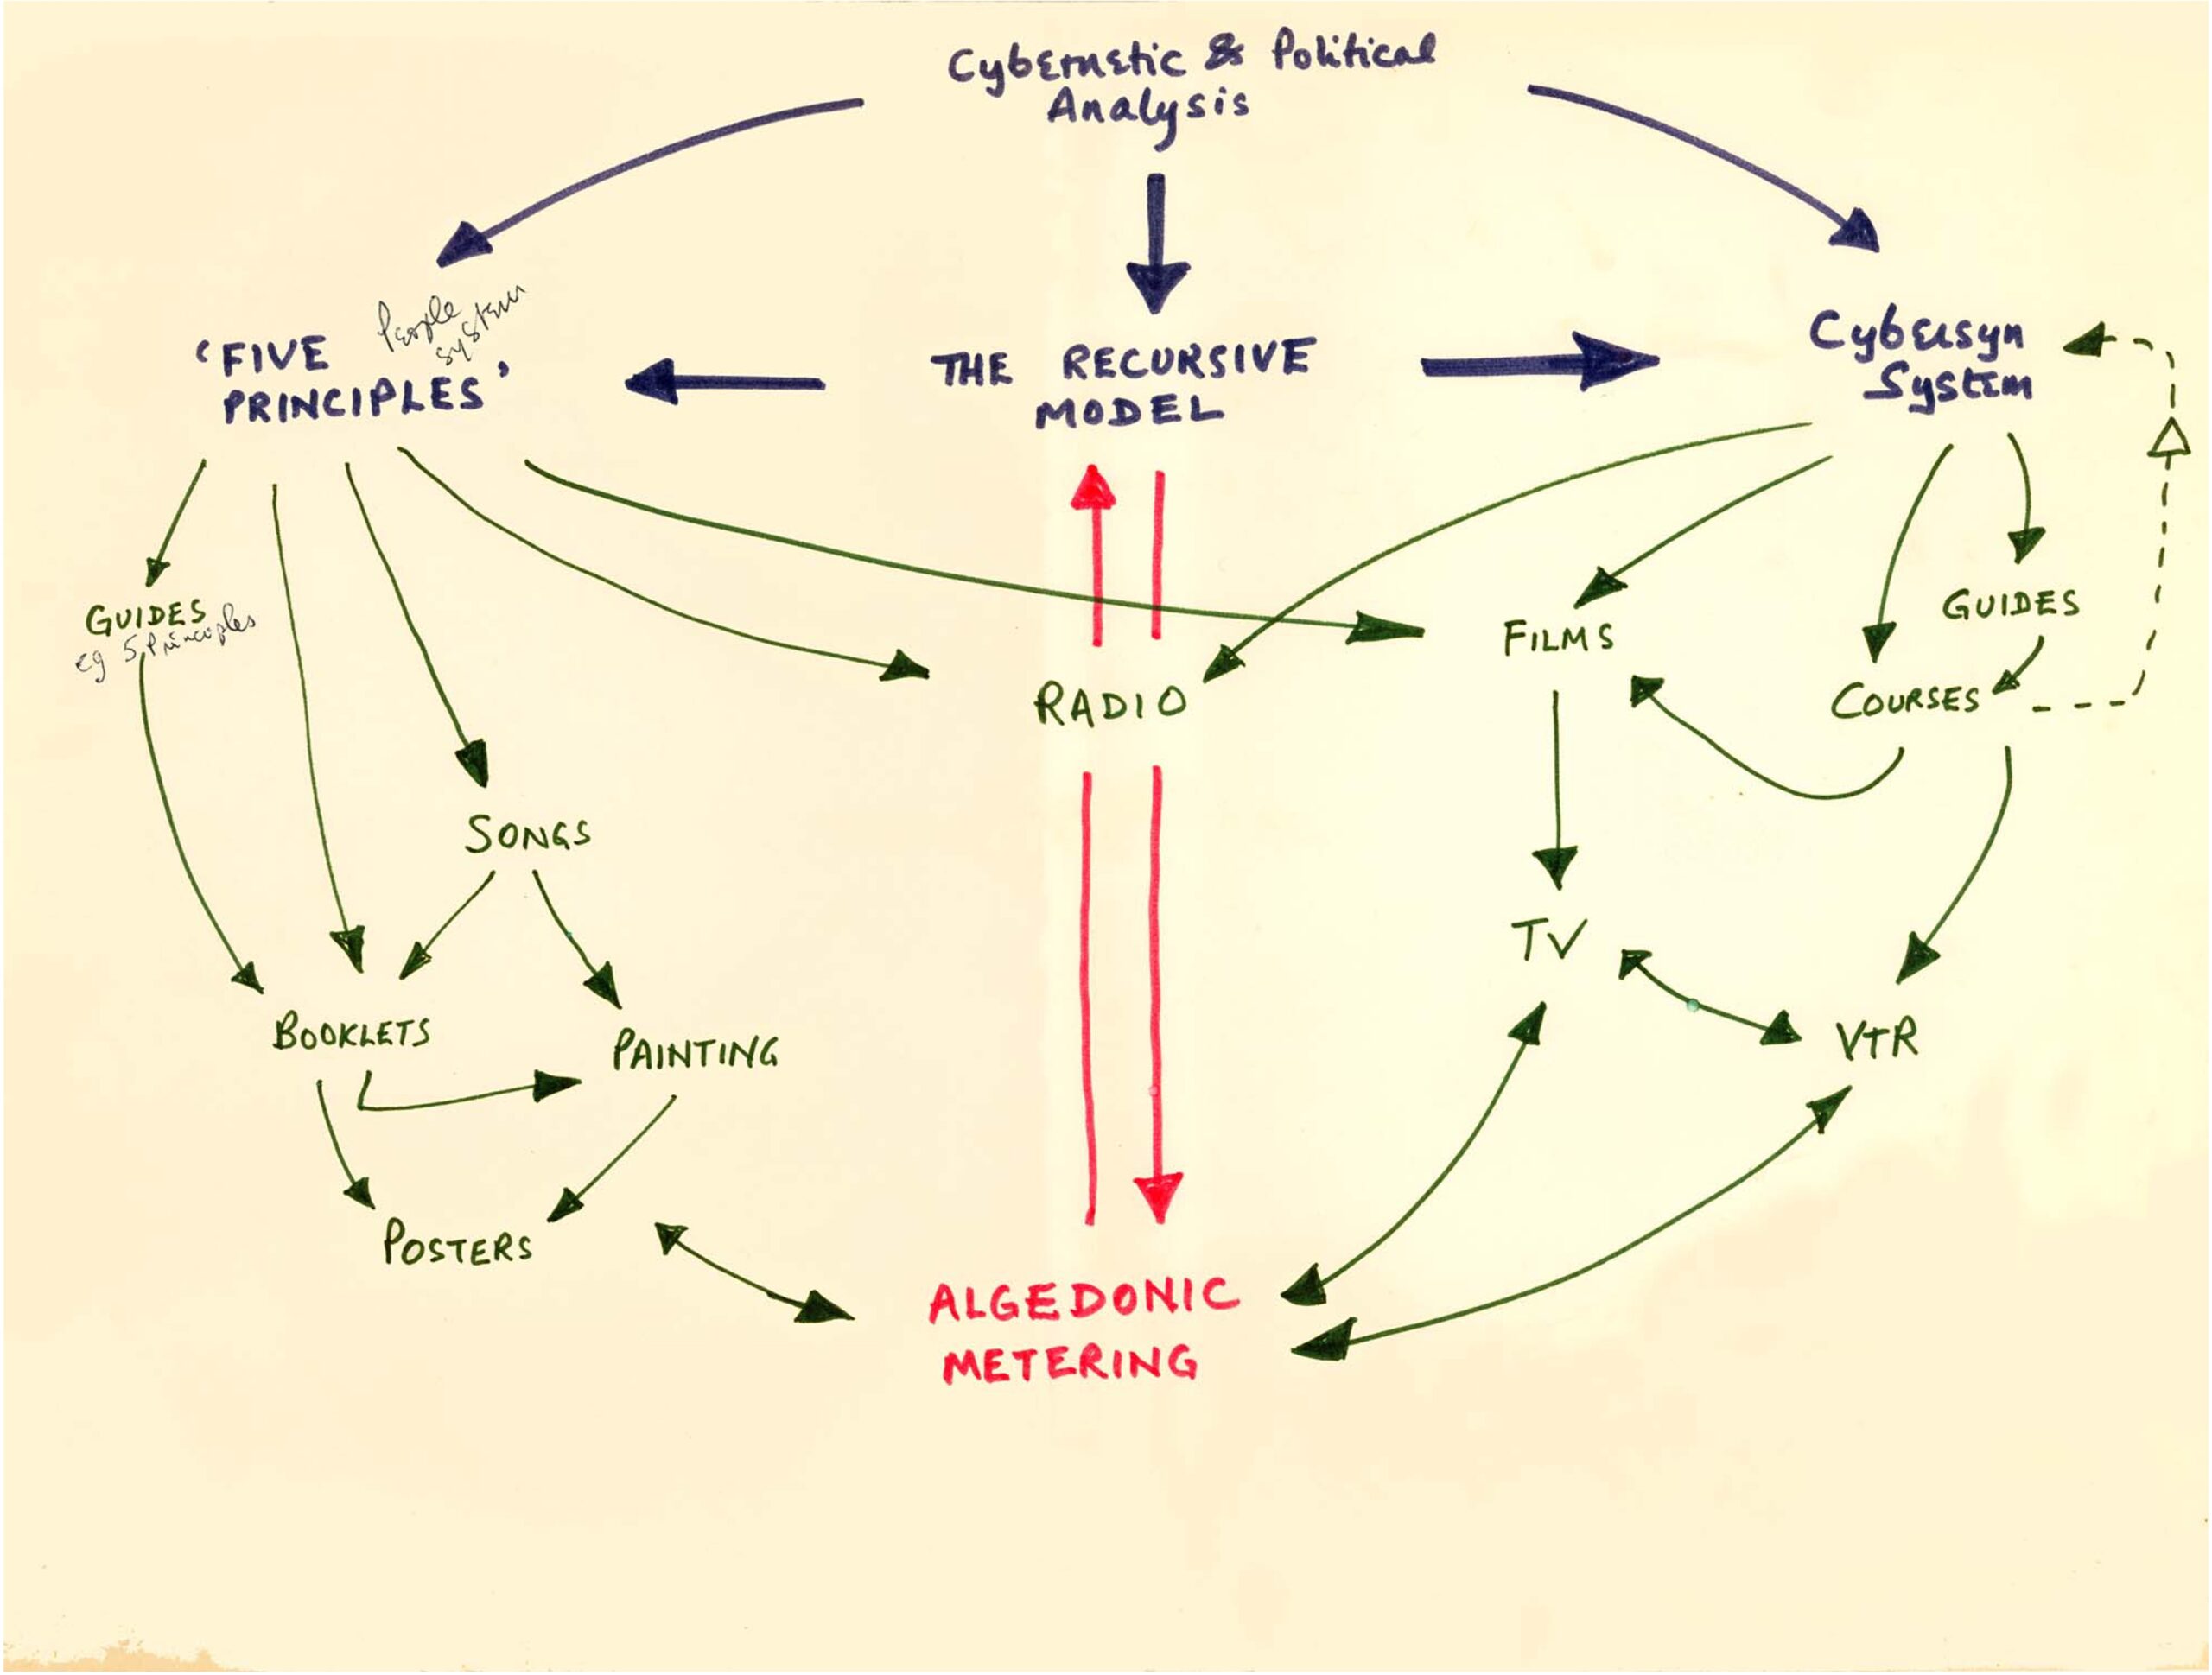 Cybernetic & Political
Analysis
'FIVE
PRINCIPLES'
People
system
THE RECURSIVE
MODEL
Cybersyn
System
GUIDES
eg 5 Principles
RADIO
FILMS
GUIDES
COURSES
SONGS
TV
BOOKLETS
PAINTING
VTR
POSTERS
ALGEDONIC
METERING